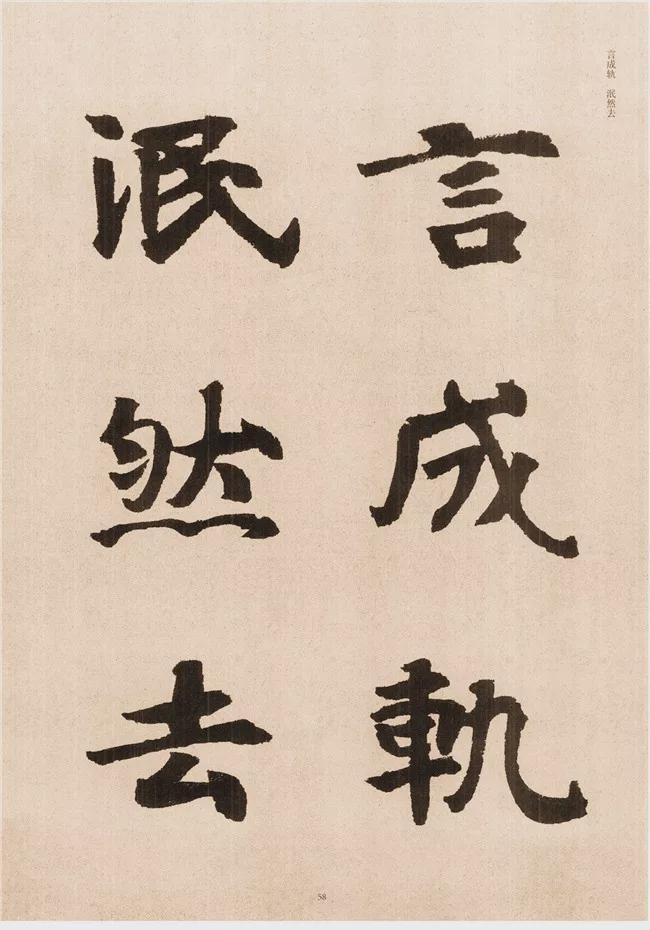 言成軌　泯然去
言成軌
泯然去
58